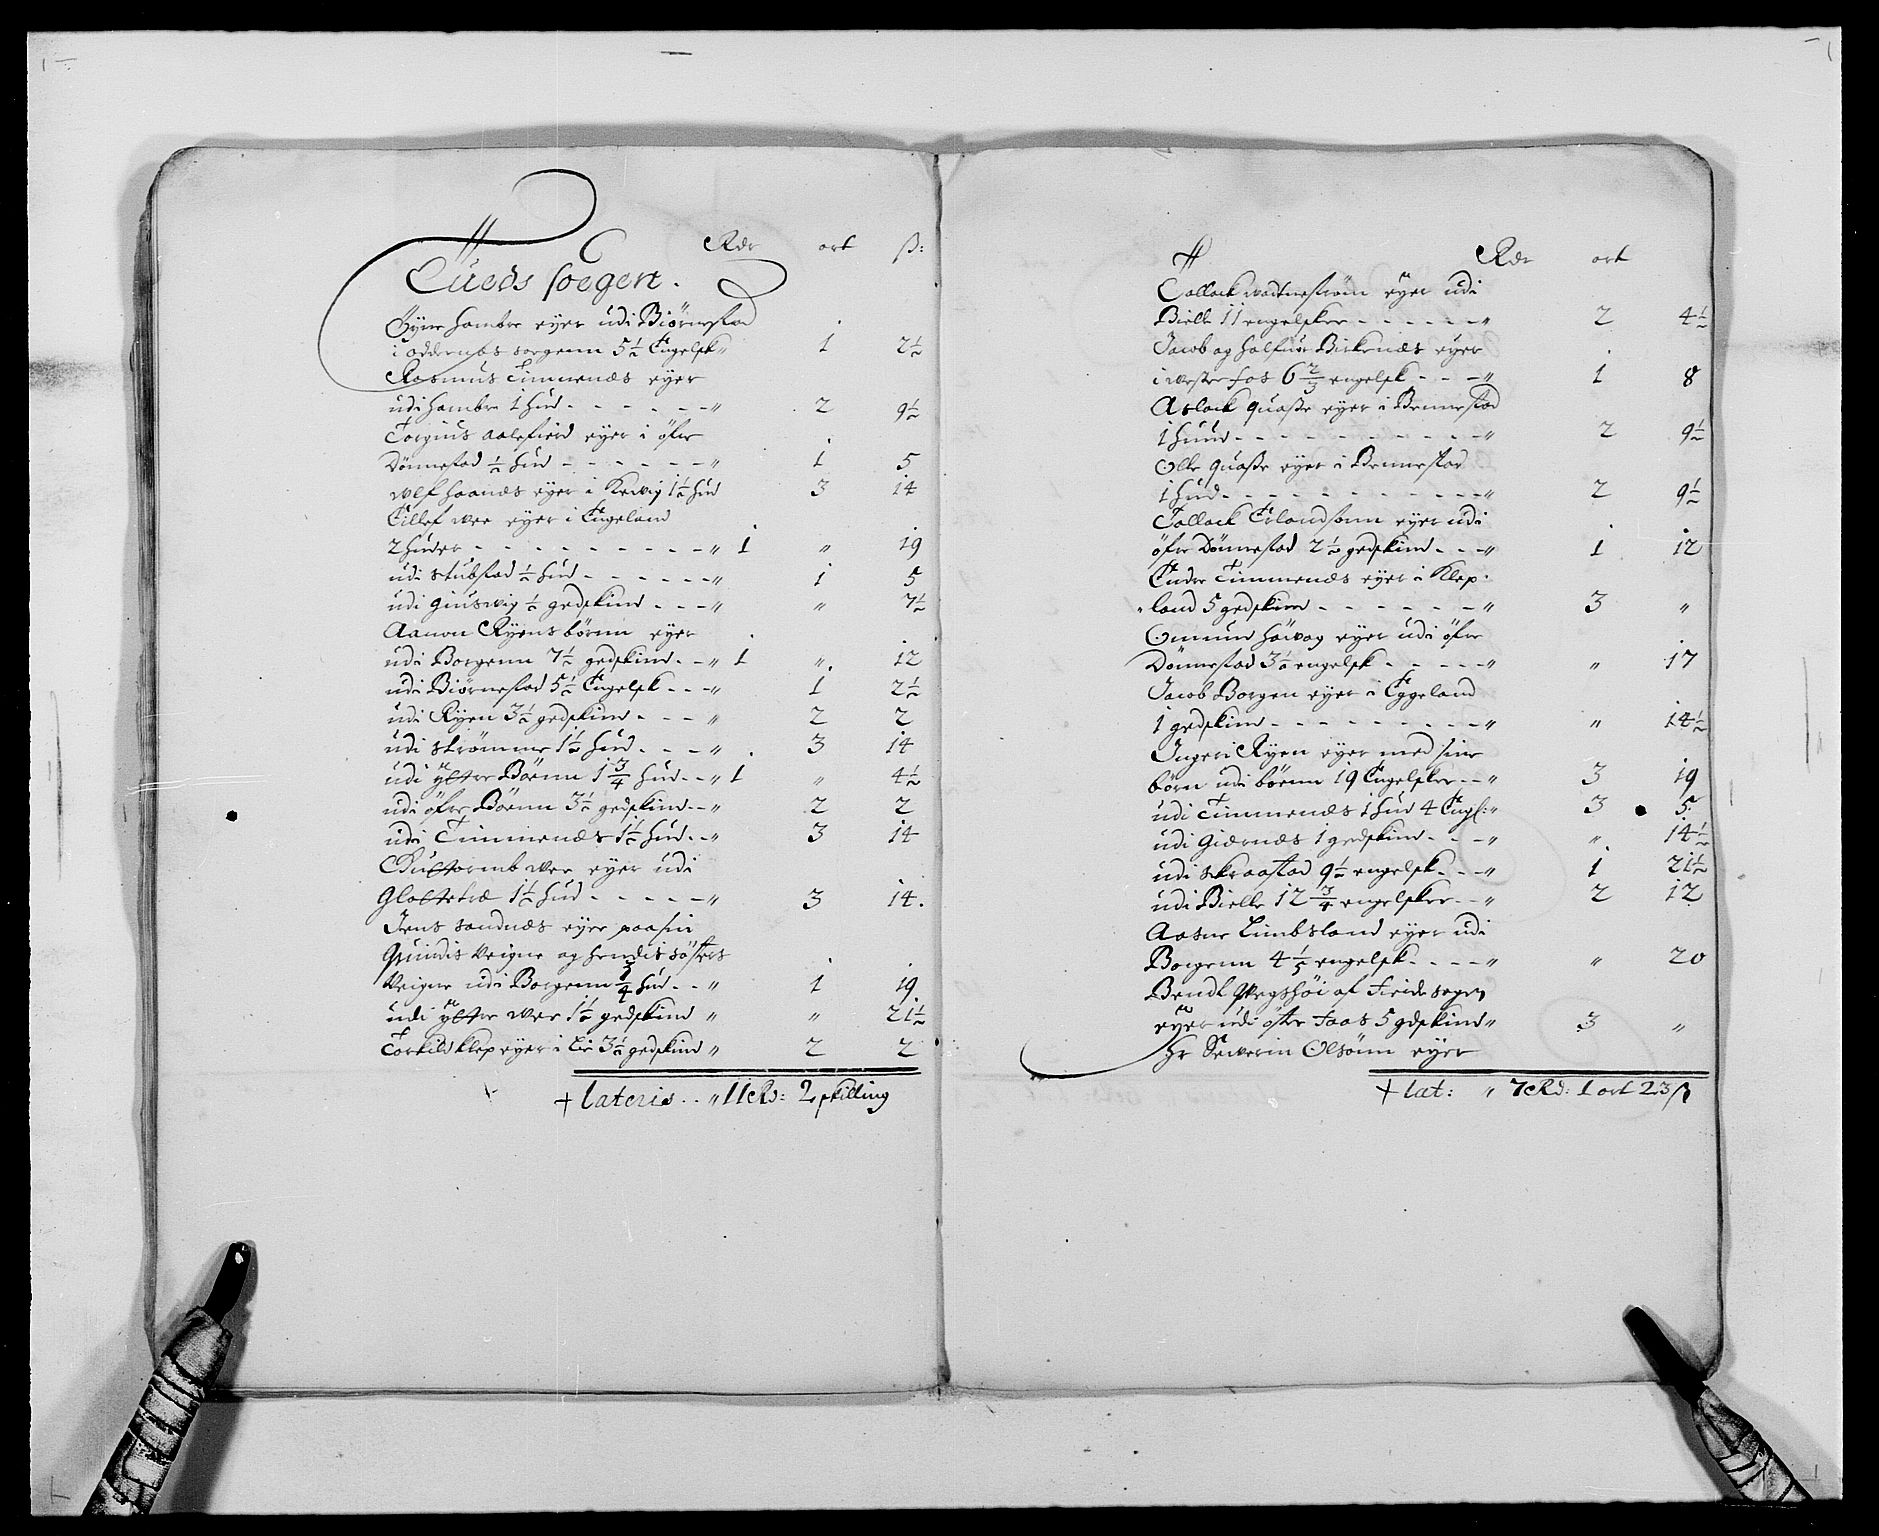 Rdr ort ß:
Tueds soegen.
Gyne Hambre eyer udi Biörnestad
i oddernæs soegenn 5½ Engelsk " 1 2½
Rasmus Timmenæs eyer
udi Hambre 1 hud - - - - - - " 2 9½
Torgius Aalefierd eyer i öfre
Dönnestad ½ hud - - - - - - " 1 5
Olef Haanæs eyer i Kevig 1½ hud 3 14
Tillef wee eyer i Engeland
2 huder - - - - - - - - - " 1 " 19
udi Stubstad ½ hud - - - - - - " 1 5
udi Giuswig ½ gedskind - - - " " 7½
Aanon Ryens börnn eyer
udi Borgenn 7½ gedskind - - " 1 " 12
udi Biörnestad 5½ Engelsk - - - " 1 2½
udi Ryen 3½ gedskind - - - " 2 2
udi Strömme 1½ hud - - - " 3 14
udi yttre Böenn 1¾ hud - - " 1 " 4½
udi öfre Böenn 3½ gedskind - - " 2 2
udi Timmenæs 1½ hud - - " 3 14
Guttormb wee eyer udi
Glattetræ 1½ hud - - - - - " 3 14.
Jens Sandnæs eyer paa sin
Quindis weigne og hendis sösters
weigne udi Borgenn ¾ hud - - " 1 19
udi yttre wee 1½ gedskind " " 21½
Torkild Klep eyer i Lie 3½ gedskind " 2 2
+ lateris . . " 11 Rd: 2 skilling
Rdr ort
Tollack wattnestrøm eyer udi
Bielle 11 engelsker - - - - - - " 2 4½
Jacob og Halfuor Birkenæs eyer
i westre fos 6⅔ engelsk - - - " 1 8
Aslack Quaße eyer i Bennestad
1 huud - - - - - - - - - " 2 9½
Olle Quaße eyer i Bennestad
1 hud - - - - - - - - - - " 2 9½
Tollack Erlandsonn eyer udi
öfre Dönnestad 2½ gedskind - - - " 1 12
Endre Timmenæs eyer i Klep-
land 5 gedskind - - - - - - " 3 "
Omund Höivog eyer udi öfre
Dönnestad 3½ engelsk - - - - - " " 17
Jacob Borgen eyer i Eggeland
1 gedskind - - - - - - - - " " 14½
Ingeri Ryen eyer med sine
börn udi börnn 19 Engelsker - - " 3 19
udi Timmenæs 1 hud 4 Engl: " 3 5
udi Giernæs 1 gedskind - - - " " 14½
udi Skraastad 9½ engelsk - - - " 1 21½
udi Bielle 12¾ engelsker - - " 2 12
Aasne Limbsland eyer udi
Borgenn 4⅕ engelsk - - - - " " 20
Bendt Wegshöi af Eeide sogen
eyer udi öftre Faas 5 gdskind " 3 "
Hr Sewerin Olsönn eyer
+ lat: " 7 Rd: 1 ort 23 ß